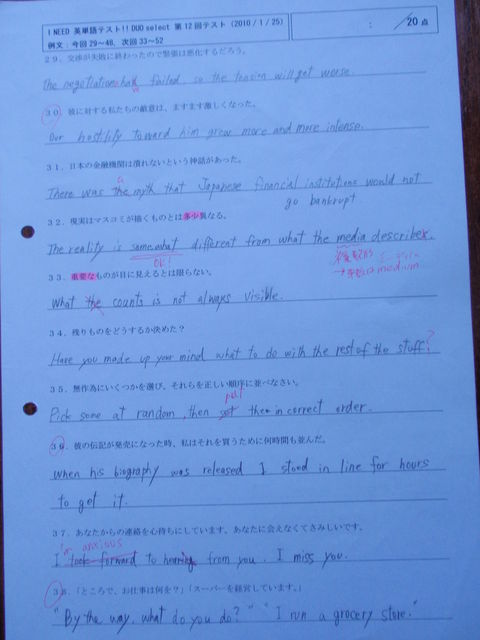 I NEED 英単語テスト!! DUO select 第12回テスト (2010/1/25)
例文：今回29～48、次回33～52
: /20点
29．交渉が失敗に終わったので緊張は悪化するだろう。
The negotiation had failed, so the tension will get worse.
30．彼に対する私たちの敵意は、ますます激しくなった。
Our hostility toward him grew more and more intense.
31．日本の金融機関は潰れないという神話があった。
a
There was the myth that Japanese financial institutions would not
go bankrupt
32．現実はマスコミが描くものとは多少異なる。
The reality is somewhat different from what the media describes.
OK!
複数形
medium
33．重要なものが目に見えるとは限らない。
What the counts is not always visible.
34．残りものをどうするか決めた？
Have you made up your mind what to do with the rest of the stuff?
35．無作為にいくつかを選び、それらを正しい順序に並べなさい。
put
Pick some at random, then set them in correct order.
36．彼の伝記が発売になった時、私はそれを買うために何時間も並んだ。
When his biography was released I stood in line for hours
to get it.
37．あなたからの連絡を心待ちにしています。あなたに会えなくてさみしいです。
'm anxious
I look forward to hearing from you. I miss you.
38．「ところで、お仕事は何を？」「スーパーを経営しています。」
"By the way, what do you do?" "I run a grocery store."